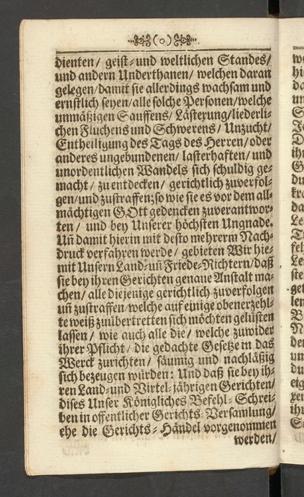 (o)
dienten/ geist- und weltlichen Standes/
und andern Underthanen/ welchen daran
gelegen/ damit sie allerdings wachsam und
ernstlich seyen/ alle solche Personen/ welche
unmäßigen Sauffens/ Lästerung/ liederli-
chen Fluchens und Schwerens/ Unzucht/
Entheiligung des Tags des Herren/ oder
anderes ungebundenen/ lasterhaften/ und
unordentlichen Wandels sich schuldig ge-
macht/ zu entdecken/ gerichtlich zuverfol-
gen/ und zustraffen; so wie sie es vor dem all-
mächtigen GOtt gedencken zuverantwor-
ten/ und bey Unserer höchsten Ungnade.
Uñ damit hierin mit desto mehrerm Nach-
druck verfahren werde/ gebieten Wir hie-
mit Unsern Land- uñ Friede-Richtern/ daß
sie bey ihren Gerichten genaue Anstalt ma-
chen/ alle diejenige gerichtlich zuverfolgen
uñ zustraffen/ welche auf einige obenerzehl-
te weiß zuübertretten sich möchten gelüsten
lassen/ wie auch alle die/ welche zuwider
ihrer Pflicht/ die gedachte Gesetze in das
Werck zurichten/ säumig und nachläßig
sich bezeugen würden: Und daß sie bey ih-
ren Land- und Virtel-jährigen Gerichten/
dises Unser Königliches Befehl-Schrei-
ben in offentlicher Gerichts-Versamlung/
ehe die Gerichts-Händel vorgenommen
werden/